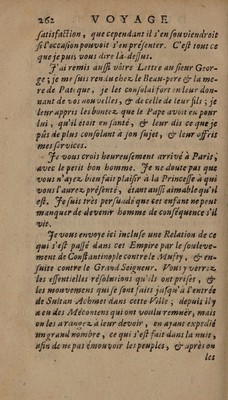 262 VOYAGE
satisfaction, que cependant il s'en souviendroit
si l'occasion pouvoit s'en presenter. C'est tout ce
que je puis vous dire là-dessus.
J'ai remis aussi vôtre Lettre au sieur Geor-
ge; je me suis rendu chez le Beau-pere & la me-
re de Patuque, je les consolai fort en leur don-
nant de vos nouvelles, & de celle de leur fils; je
leur appris les bontez que le Pape avoit eu pour
lui, qu'il étoit en santé, & leur dis ce que je
pûs de plus consolant à son sujet, & leur offris
mes services.
Je vous crois heureusement arrivé à Paris,
avec le petit bon homme. Je ne doute pas que
vous n'ayez bien fait plaisir à la Princesse à qui
vous l'aurez presenté, étant aussi aimable qu'il
est. Je suis très persuadé que cet enfant ne peut
manquer de devenir homme de conséquence s'il
vit.
Je vous envoye ici incluse une Relation de ce
qui s'est passé dans cet Empire par le souleve-
ment de Constantinople contre le Mufty, & en-
suite contre le Grand Seigneur. Vous y verrez
les essentielles résolutions qu'ils ont prises, &
les mouvemens qui se sont faits jusqu'à l'entrée
de Sultan Achmet dans cette Ville; depuis il y
a eu des Mécontens qui ont voulu remuër, mais
on les a rangez à leur devoir, en ayant expedié
un grand nombre, ce qui s'est fait dans la nuit,
afin de ne pas émouvoir les peuples, & après on
les